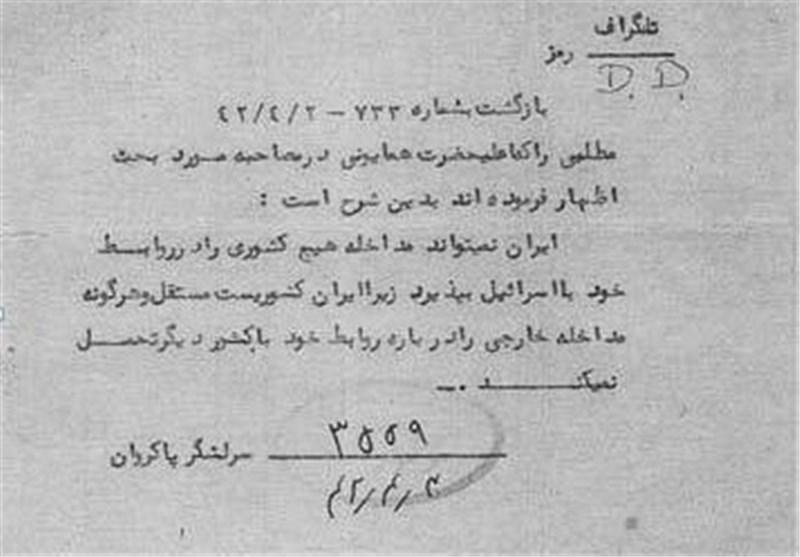 تلگراف
رمز
D. D.
بازگشت بشماره ۷۳۳ – ۴۲/۴/۲
مطلبی را که اعلیحضرت همایونی در مصاحبه مورد بحث
اظهار فرموده اند بدین شرح است :
ایران نمیتواند مداخله هیچ کشوری را در روابط
خود با اسرائیل بپذیرد زیرا ایران کشوریست مستقل و هرگونه
مداخله خارجی را در باره روابط خود با کشور دیگر تحمل
نمیکند .ـ
۳۵۵۹
سرلشگر پاکروان
۴۲/۴/۳